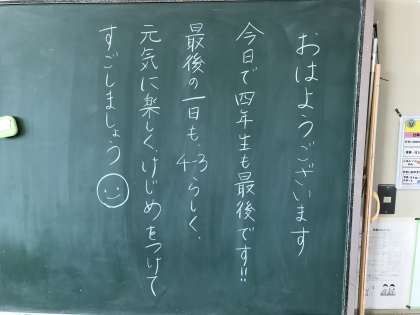 おはようございます
今日で四年生も最後です!!
最後の一日も、4-3らしく、
元気に楽しく、けじめをつけて
すごしましょう